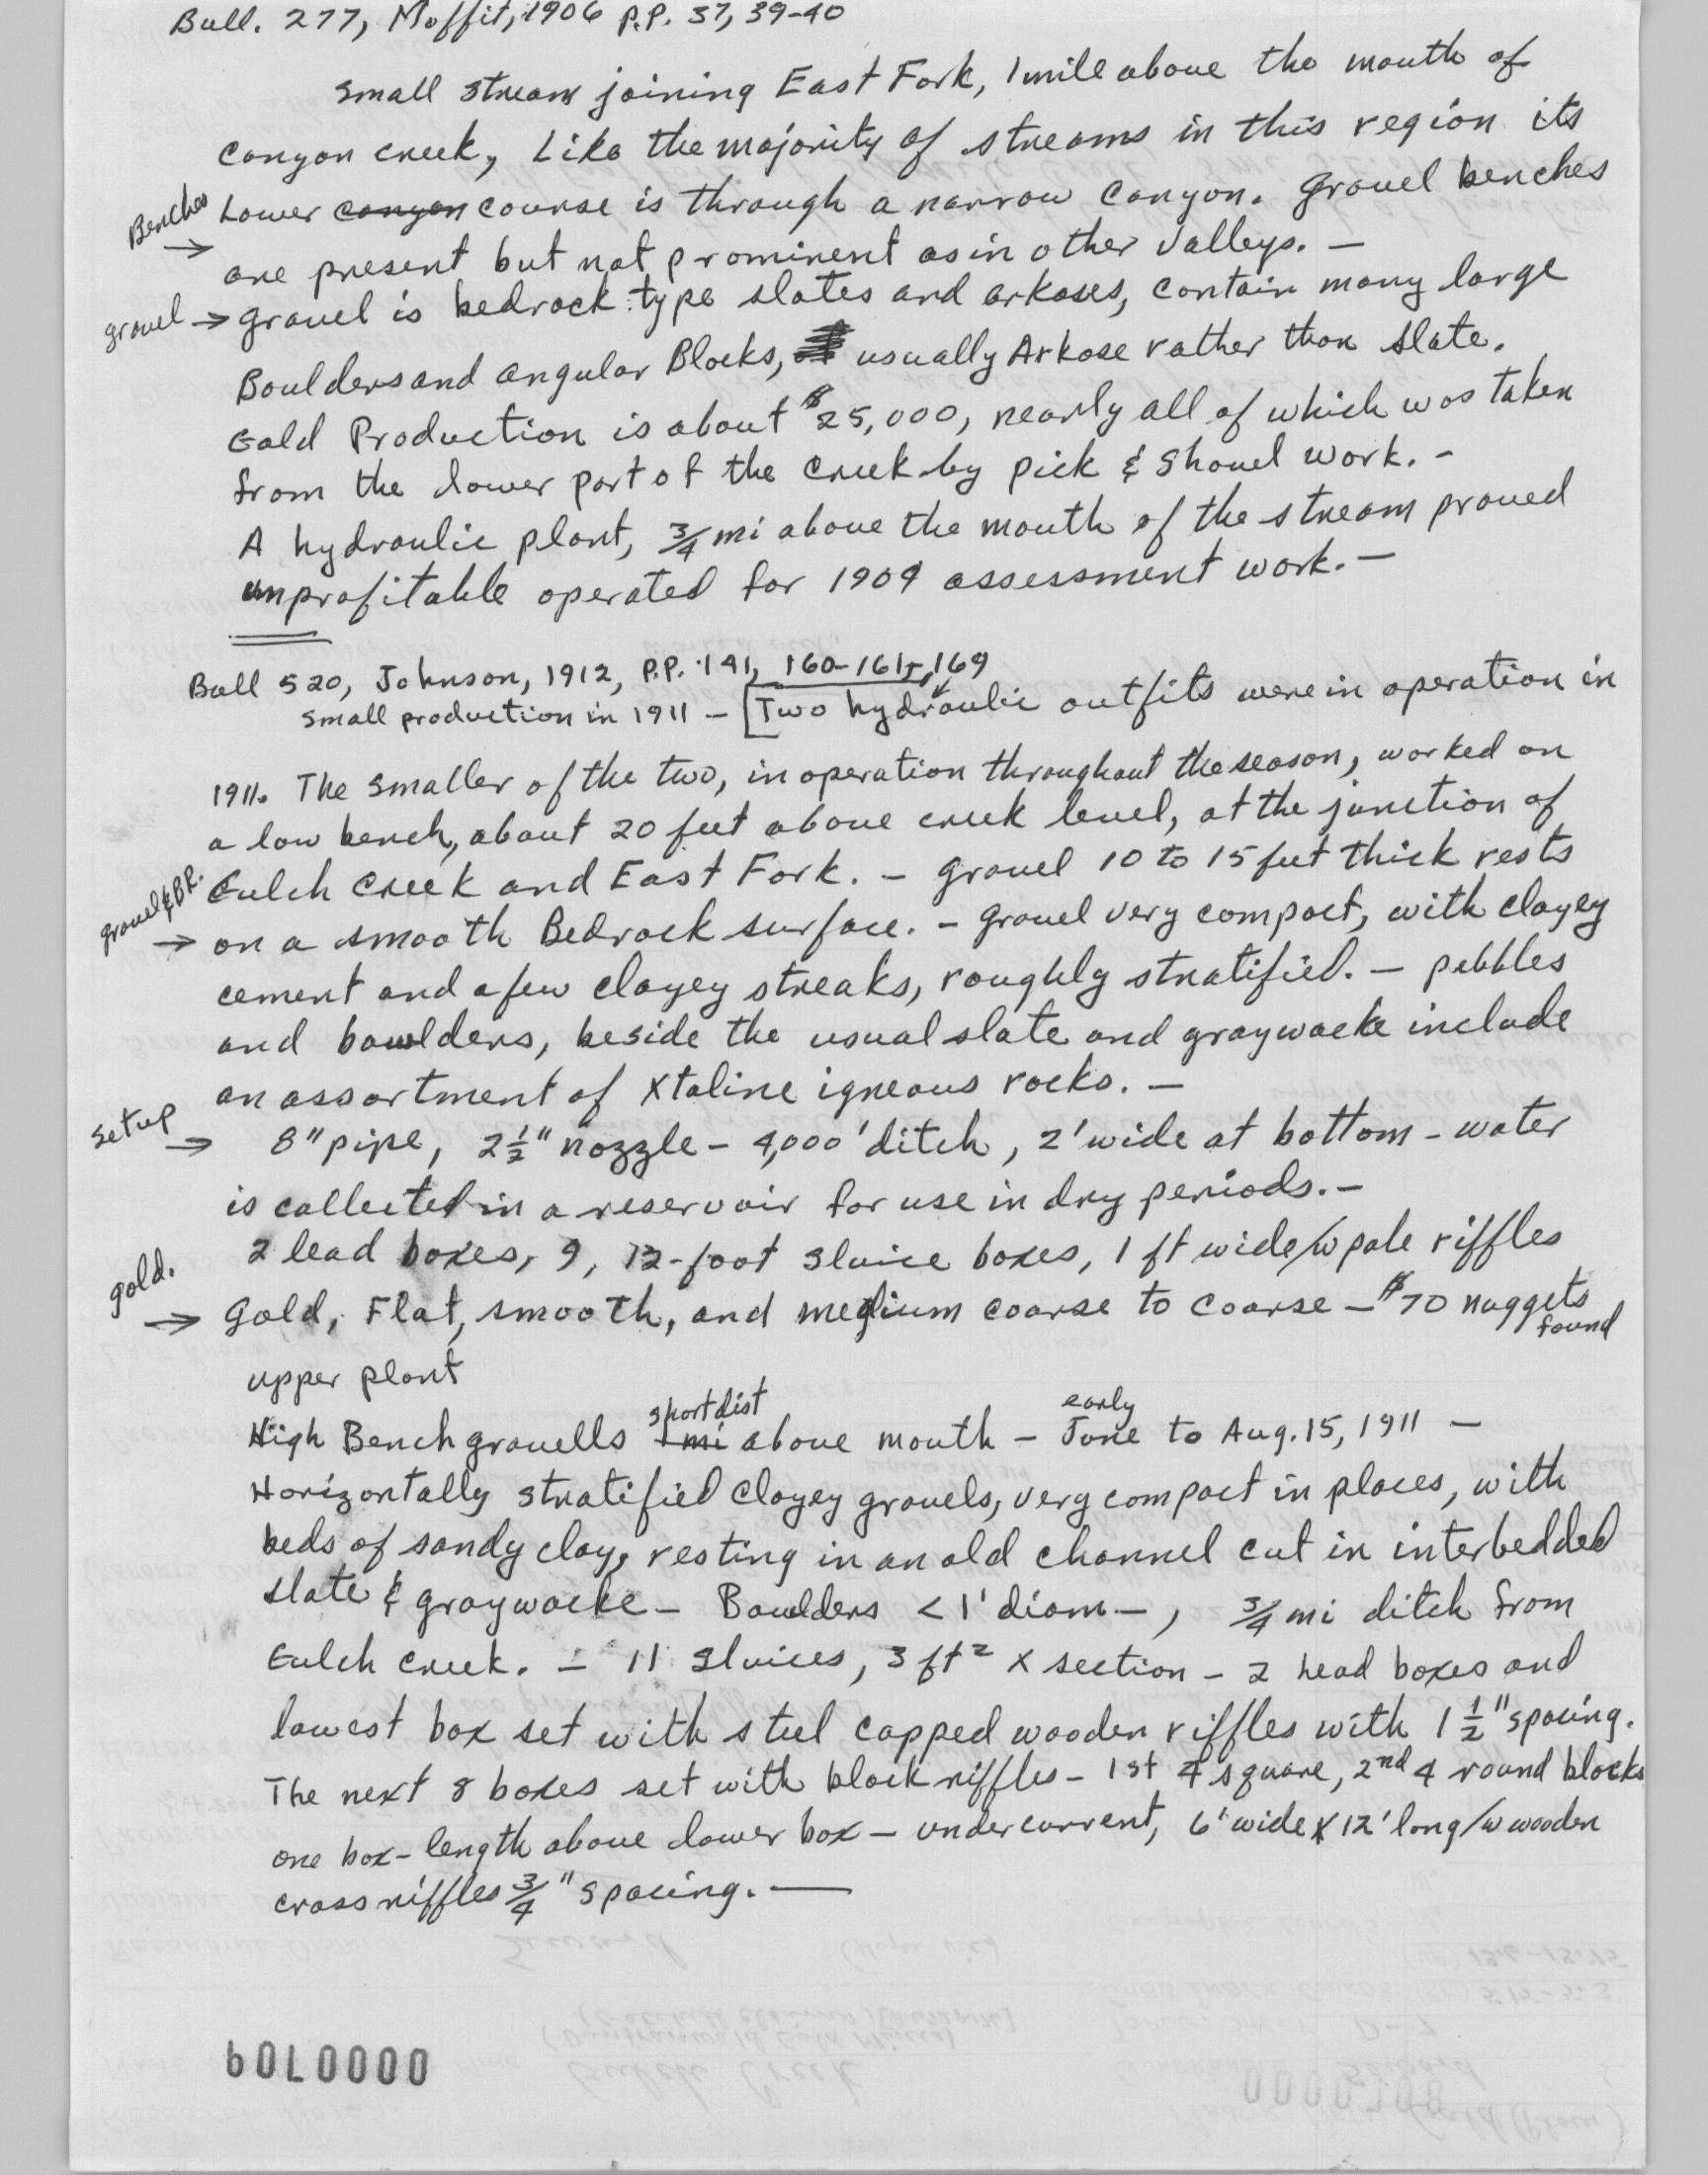 Bull. 277, Moffit, 1906 P.P. 37, 39-40
Small stream joining East Fork, 1 mile above the mouth of
Canyon creek, Like the majority of streams in this region its
Benches → Lower canyon course is through a narrow canyon. Gravel benches
are present but not prominent as in other valleys. —
gravel → gravel is bedrock type slates and arkoses, contain many large
Boulders and angular Blocks, usually Arkose rather than slate.
Gold Production is about $25,000, nearly all of which was taken
from the lower part of the creek by pick & shovel work. -
A hydraulic plant, 3/4 mi above the mouth of the stream proved
unprofitable operated for 1904 assessment work. —
Bull 520, Johnson, 1912, P.P. 141, 160-161, 169
small production in 1911 — [Two hydraulic outfits were in operation in
1911. The smaller of the two, in operation throughout the season, worked on
a low bench, about 20 feet above creek level, at the junction of
Gulch Creek and East Fork. - gravel 10 to 15 feet thick rests
gravel & BR. → on a smooth Bedrock surface. - gravel very compact, with clayey
cement and a few clayey streaks, roughly stratified. — pebbles
and bowlders, beside the usual slate and graywacke include
an assortment of Xtaline igneous rocks. —
Setup → 8" pipe, 2 1/2" nozzle - 4,000' ditch, 2' wide at bottom - water
is collected in a reservoir for use in dry periods. —
2 lead boxes, 9, 12-foot sluice boxes, 1 ft wide/w pole riffles
gold. → Gold, Flat, smooth, and medium coarse to coarse — $70 nuggets
found
upper plant
High Bench gravells 1 mi short dist above mouth — early June to Aug. 15, 1911 —
Horizontally stratified clayey gravels, very compact in places, with
beds of sandy clay, resting in an old channel cut in interbedded
slate & graywacke — Bowlders < 1' diam —, 3/4 mi ditch from
Gulch creek. — 11 sluices, 3 ft² X section - 2 head boxes and
lowest box set with steel capped wooden riffles with 1 1/2" spacing.
The next 8 boxes set with block riffles - 1st 4 square, 2nd 4 round blocks
one box-length above lower box — undercurrent, 6' wide X 12' long/w wooden
cross riffles 3/4" spacing. —
0000709